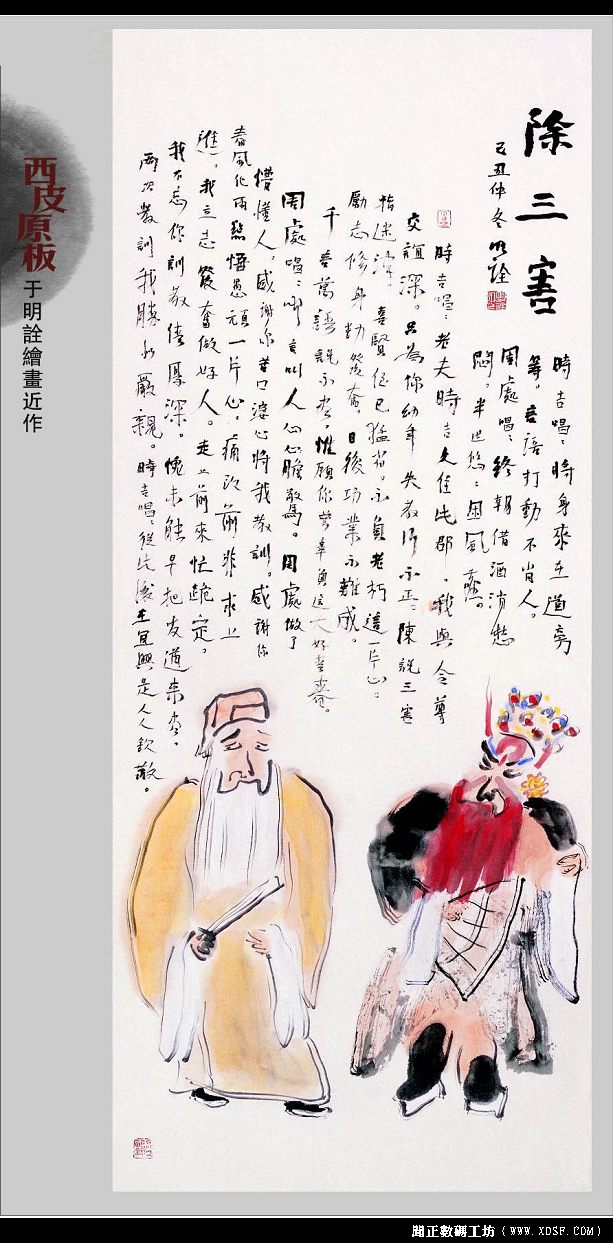 西皮原板
于明詮繪畫近作
除三害
己丑仲冬明詮
時吉唱：時身來在道旁
等。言語打動不肖人。
周處唱：終朝借酒消愁
悶。半世悠悠困風塵。
時吉唱：老夫時吉久住此郡。我與令尊
交誼深。只為你幼年失教誨不正。陳說三害
指迷津。喜賢侄已猛省。不負老朽這一片心。
勵志修身勤發奮。日後功業不難成。
千言萬語說不盡。惟願你
周處唱：
人心膽驚。周處做了
懵懂人。感謝你苦口婆心將我教訓。感謝你
春風化雨點悟愚頑一片心。痛改前非求上
進。我立志發奮做好人。走上前來忙跪定。
我不忘你訓教情厚深。愧未能早把友道來盡。
兩次教訓我勝如嚴親。時吉唱：從此後在宜興是人人欽敬。
聞正數碼工坊（WWW.XDSF.COM）